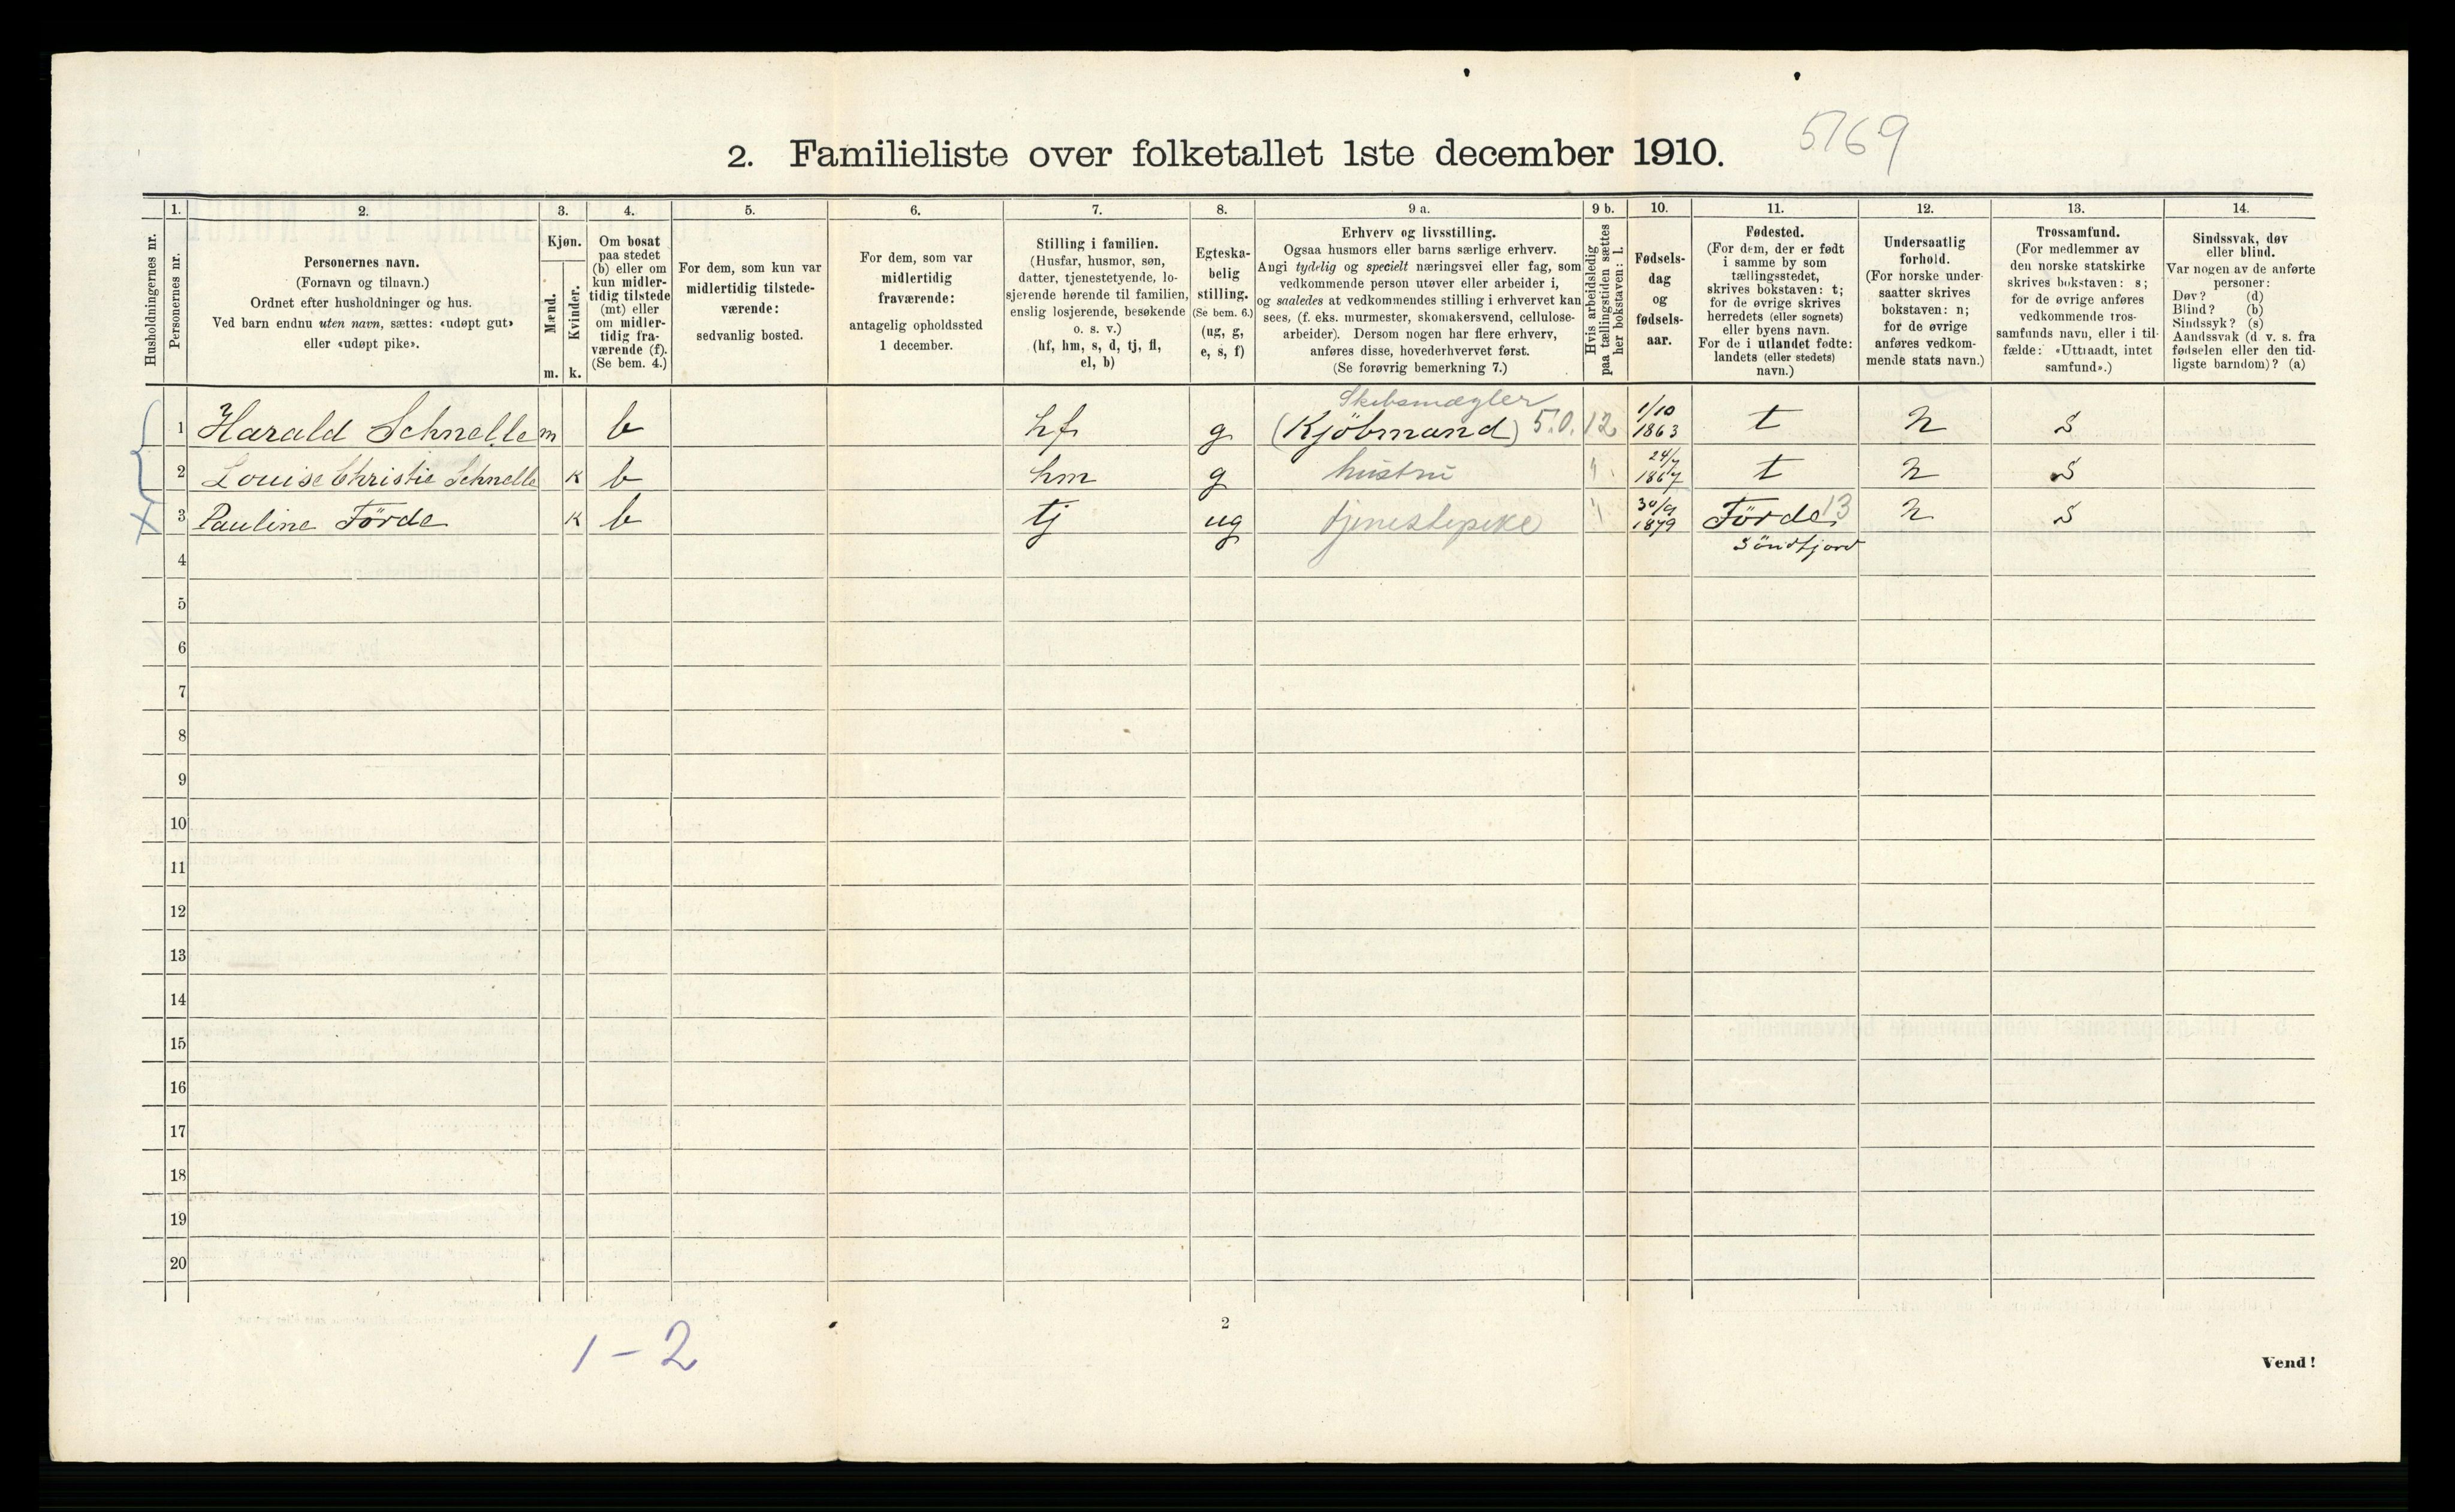 2. Familieliste over folketallet 1ste december 1910.
5769
1. 2. 3. 4. 5. 6. 7. 8. 9 a. 9 b. 10. 11. 12. 13. 14.
Husholdningernes nr.
Personernes nr.
Personernes navn.
(Fornavn og tilnavn.)
Ordnet efter husholdninger og hus.
Ved barn endnu uten navn, sættes: «udøpt gut»
eller «udøpt pike».
Kjøn.
Mænd.
m.
Kvinder.
k.
Om bosat
paa stedet
(b) eller om
kun midler-
tidig tilstede
(mt) eller
om midler-
tidig fra-
værende (f).
(Se bem. 4.)
For dem, som kun var
midlertidig tilstede-
værende:
sedvanlig bosted.
For dem, som var
midlertidig
fraværende:
antagelig opholdssted
1 december.
Stilling i familien.
(Husfar, husmor, søn,
datter, tjenestetyende, lo-
sjerende hørende til familien,
enslig losjerende, besøkende
o. s. v.)
(hf, hm, s, d, tj, fl,
el, b)
Egteska-
belig
stilling.
(Se bem. 6.)
(ug, g,
e, s, f)
Erhverv og livsstilling.
Ogsaa husmors eller barns særlige erhverv.
Angi tydelig og specielt næringsvei eller fag, som
vedkommende person utøver eller arbeider i,
og saaledes at vedkommendes stilling i erhvervet kan
sees, (f. eks. murmester, skomakersvend, cellulose-
arbeider). Dersom nogen har flere erhverv,
anføres disse, hovederhvervet først.
(Se forøvrig bemerkning 7.)
Hvis arbeidsledig
paa tællingstiden sættes
her bokstaven: l.
Fødsels-
dag
og
fødsels-
aar.
Fødested.
(For dem, der er født
i samme by som
tællingsstedet,
skrives bokstaven: t;
for de øvrige skrives
herredets (eller sognets)
eller byens navn.
For de i utlandet fødte:
landets (eller stedets)
navn.)
Undersaatlig
forhold.
(For norske under-
saatter skrives
bokstaven: n;
for de øvrige
anføres vedkom-
mende stats navn.)
Trossamfund.
(For medlemmer av
den norske statskirke
skrives bokstaven: s;
for de øvrige anføres
vedkommende tros-
samfunds navn, eller i til-
fælde: «Uttraadt, intet
samfund».)
Sindssvak, døv
eller blind.
Var nogen av de anførte
personer:
Døv? (d)
Blind? (b)
Sindssyk? (s)
Aandssvak (d. v. s. fra
fødselen eller den tid-
ligste barndom)? (a)
Skibsmægler
1 Harald Schnelle m b hf g (Kjöbmand) 5.0.12 1/10 1863 t n s
2 Louise Christie Schnelle k b hm g hustru 24/7 1867 t n s
3 Pauline Förde k b tj ug tjenestepike 30/9 1879 Förde 13 n s
Söndfjord
4
5
6
7
8
9
10
11
12
13
14
15
16
17
18
19
20
1-2
2
Vend!